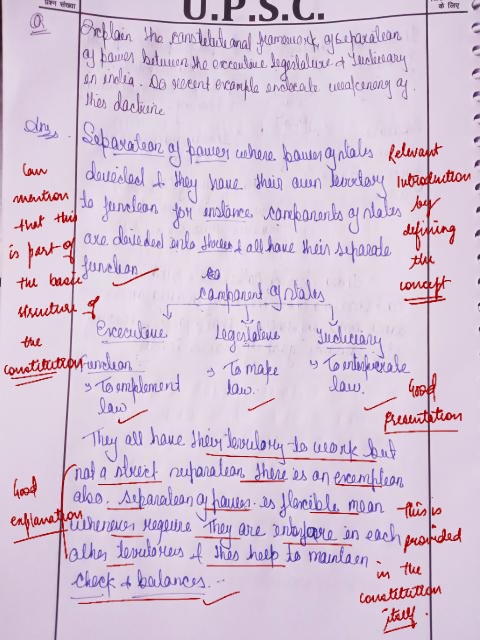 प्रश्न संख्या
U.P.S.C.
के लिए
Q.
Explain the constitutional framework of separation
of power between the executive legislature & Judiciary
in india. Do recent example indicate weakening of
this doctrine
Ans.
Separation of power where power of states
devided & they have their own terrotary
to function for instance components of states
are devided into three & all have their separate
function
component of states
Executive
legislature
Judiciary
Function
To implement
law
To make
law.
To interprate
law.
They all have their terrotary to work but
not a strict separation there is an exemption
also. Separation of power is flexible mean
whenever require They are in each
other terrotories & this help to maintain
check & balances...
Can
mention
that this
is part of
the basic
structure of
the
constitution
Relevant
Introduction
by
defining
the
concept
Good
Presentation
Good
explanation
This is
provided
in the
constitution
itself.